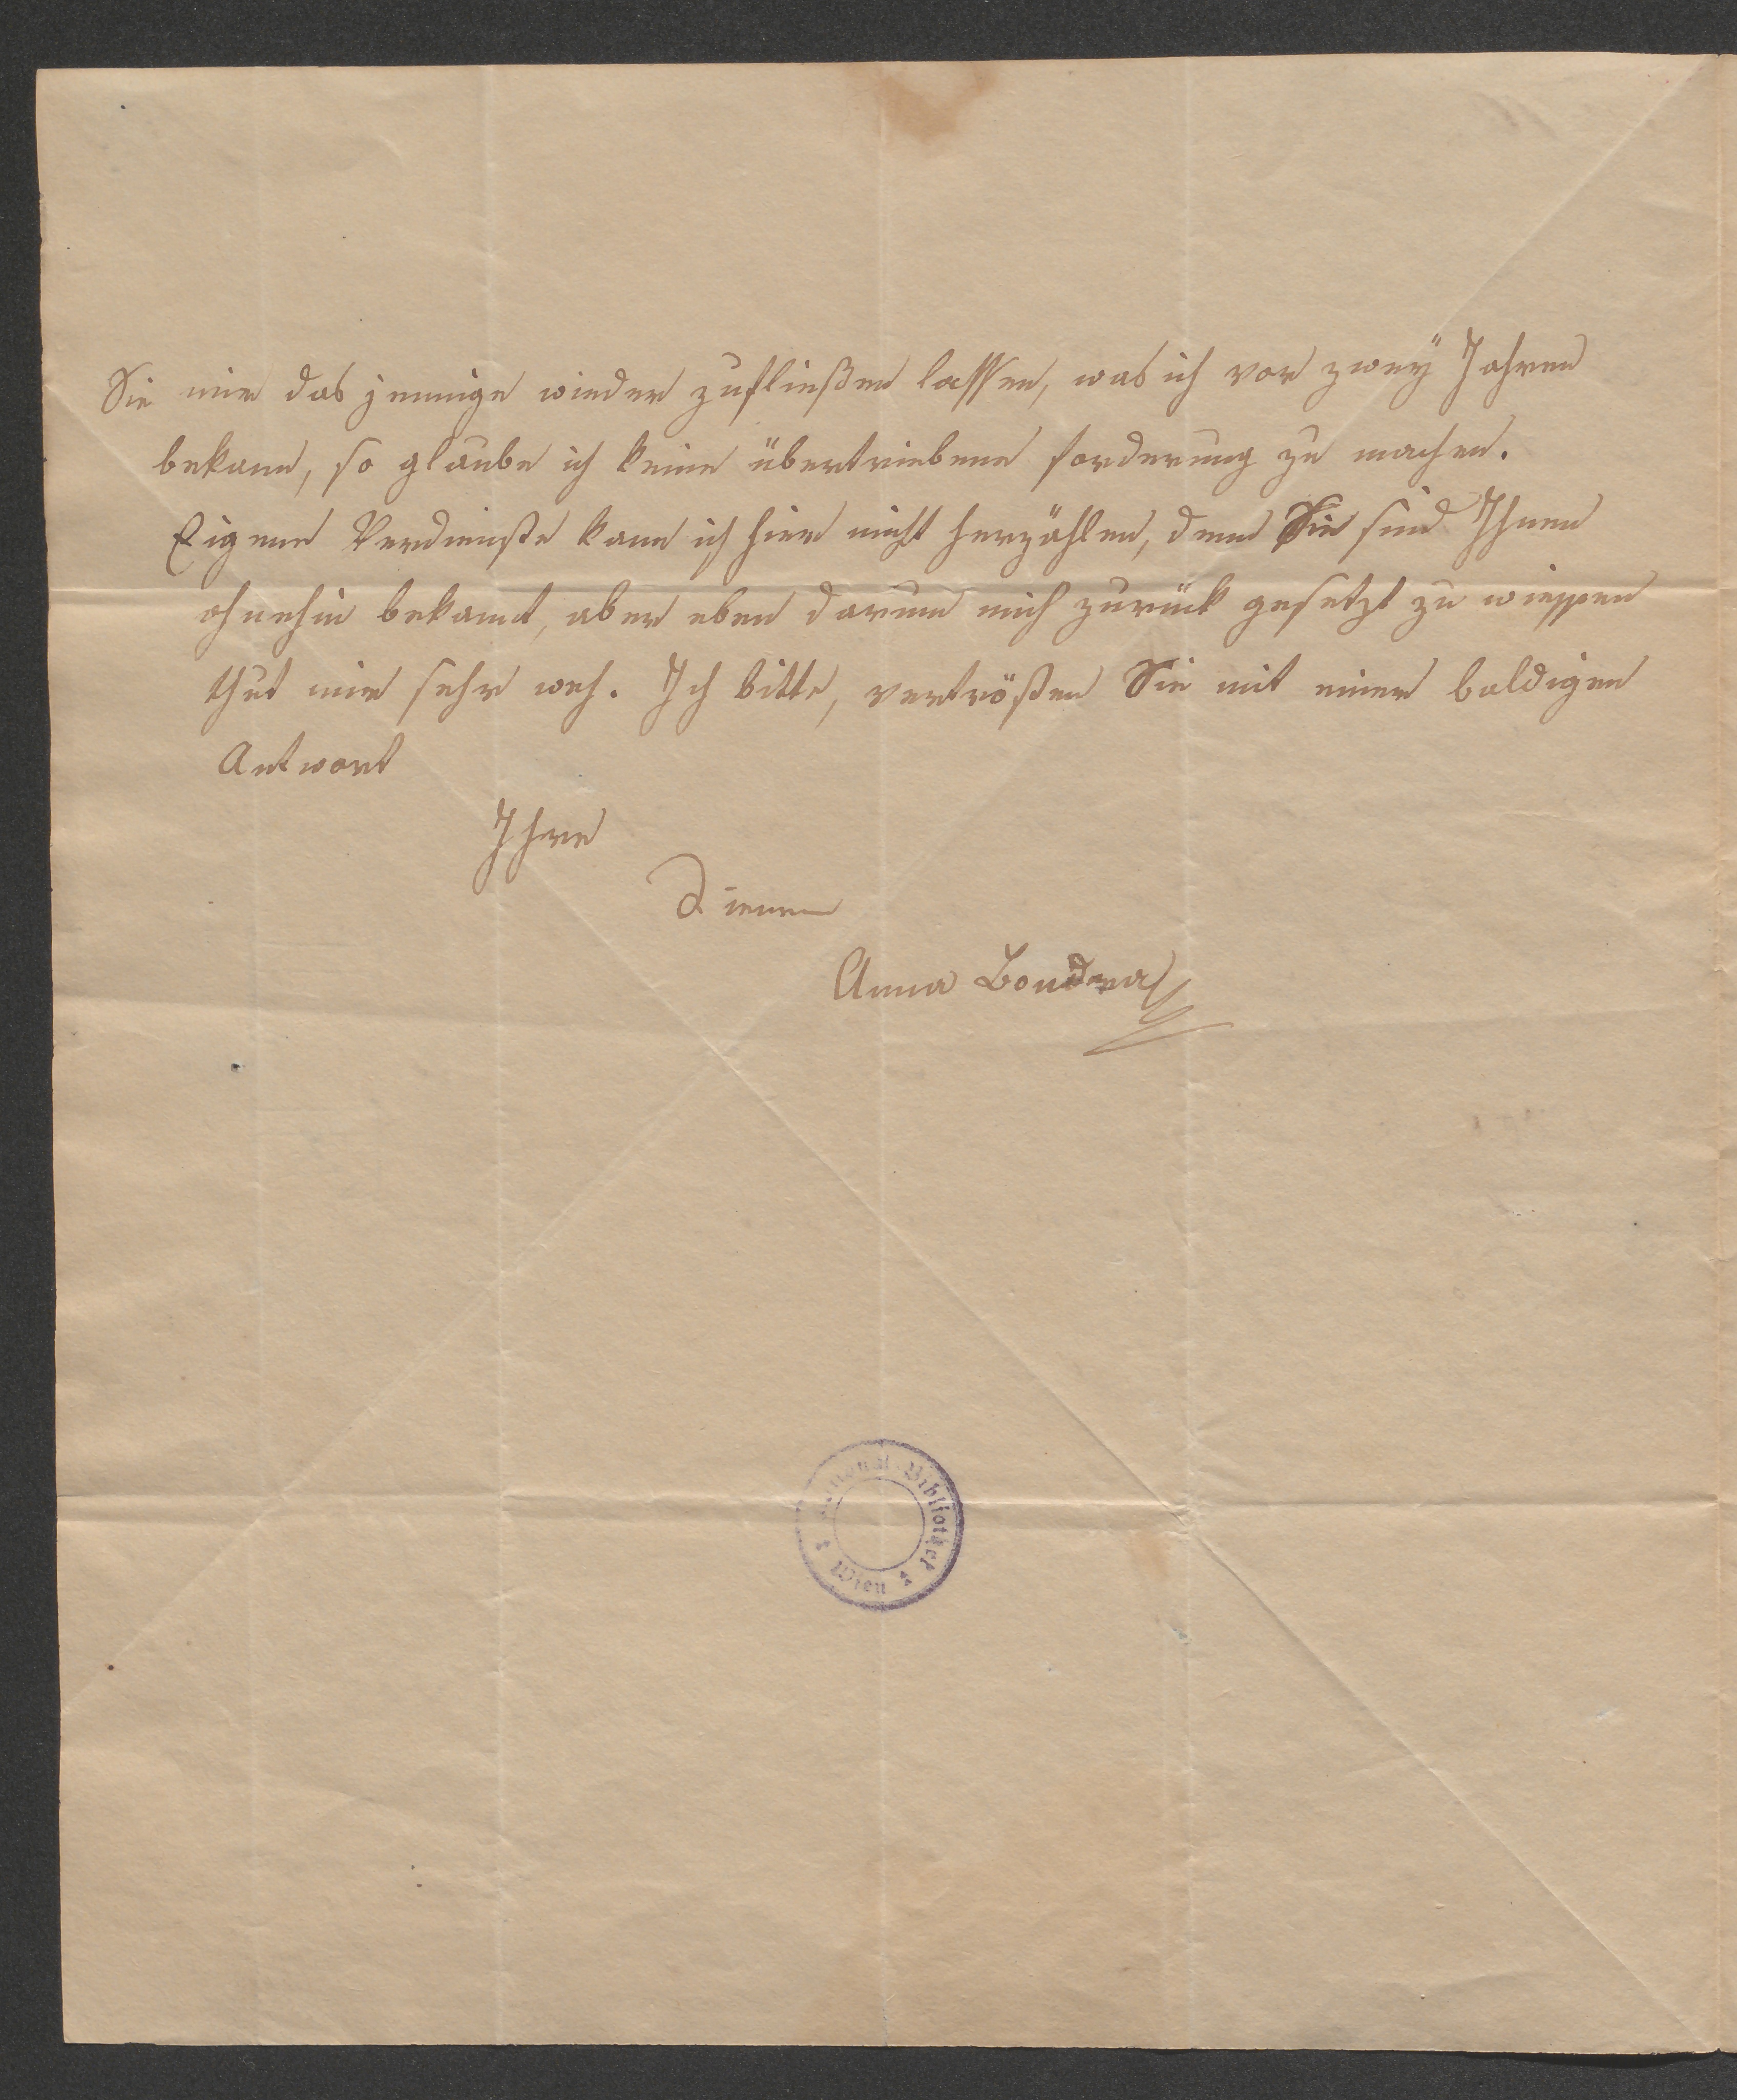 Sie mir das jennige wieder zufließen lassen, was ich vor zwey Jahren
bekamm, so glaube ich keine übertriebene forderung zu machen.
Eigene Verdienste kann ich hier nicht herzählen, denn Sie sind Ihnen
ohnehin bekannt, aber eben darum mich zurück gesetzt zu wissen
thut mir sehr weh. Ich bitte, vertrößen Sie mit einer baldigen
Antwort
Ihre
Dienerin
Anna Boudra
National-Bibliothek
Wien